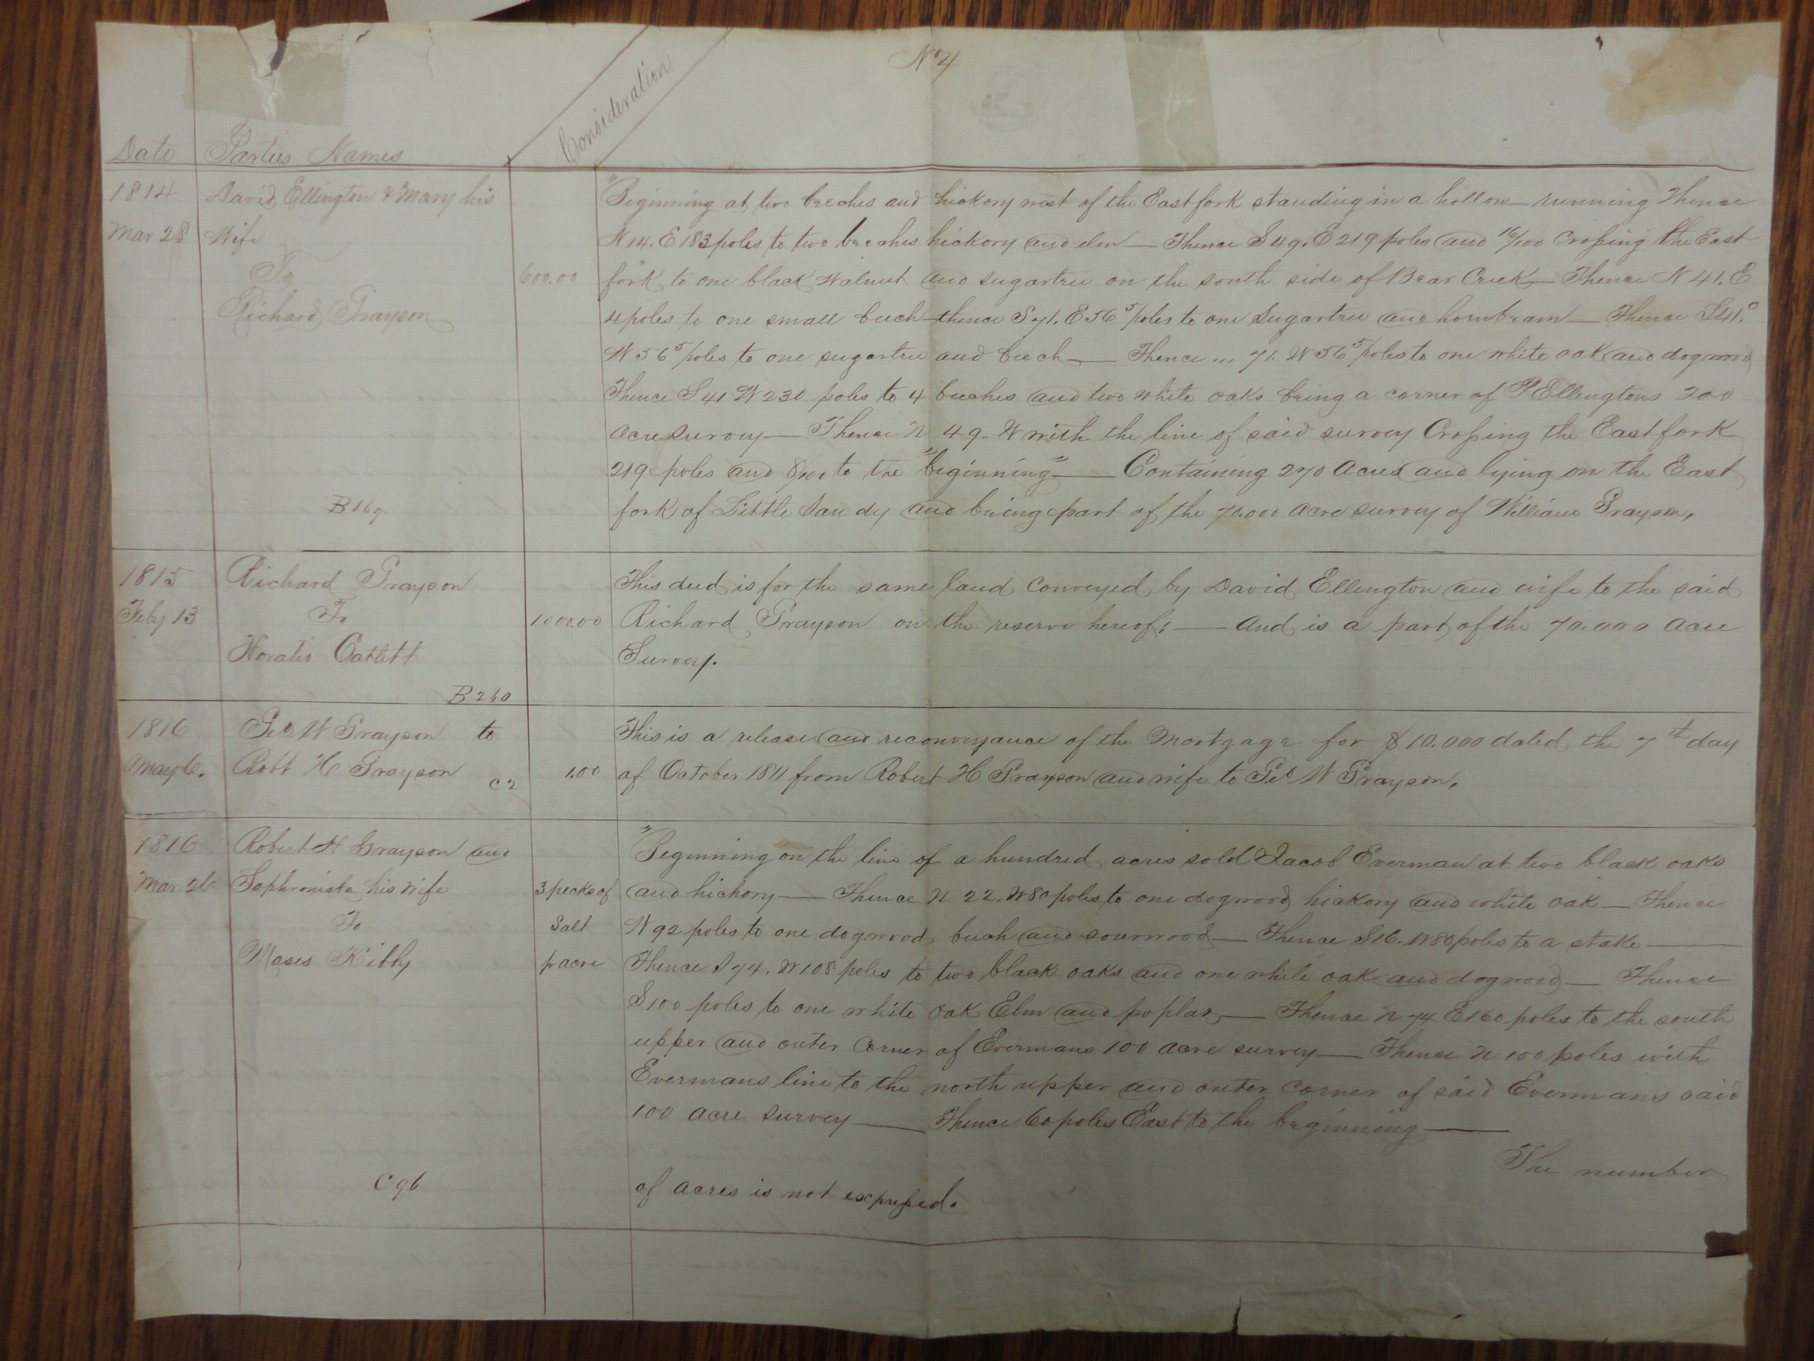 No 4
Date Parties Names Consideration
1814 David Ellington & Mary his
Mar 28 Wife
To
Richard Grayson
600.00
B 169
"Beginning at two beeches and hickory west of the East fork standing in a hollow running Thence
N 14. E 183 poles to two beeches hickory and elm — Thence S 49. E 219 poles and 16/100 Crossing the East
fork to one black Walnut and sugartree on the south side of Bear Creek — Thence N 41. E
4 poles to one small beech — thence S 71. E 56 5/ poles to one Sugartree and hornbeam — Thence S 41.°
W 56 5/ poles to one sugartree and beech — Thence ... 71. W 56 5/ poles to one white oak and dogwood
Thence S 41 W 230 poles to 4 beeches and two white oaks being a corner of Ellingtons 200
acre survey — Thence N 49. W with the line of said survey Crossing the East fork
219 poles and to the "beginning" — Containing 270 Acres and lying on the East
fork of Little Sandy and being part of the 70.000 acre survey of William Grayson,
1815 Richard Grayson
Feby 13 To
Horatio Catlett
B 260
1000.00
This deed is for the same land conveyed by David Ellington and wife to the said
Richard Grayson on the reserve hereof; — And is a part of the 70.000 Acre
Survey.
1816 Geo W Grayson to
May 6. Robt H Grayson C 2
1.00
This is a release and reconveyance of the Mortgage for $10.000 dated the 7th day
of October 1811 from Robert H Grayson and wife to Geo W Grayson,
1816 Robert H Grayson and
Mar 26 Sophronista his wife
To
Moses Kibby
3 pecks of
Salt
pr acre
C 96
"Beginning on the line of a hundred acres sold Jacob Everman at two black oaks
and hickory — Thence N 22. W 80 poles to one dogwood hickory and white oak — Thence
N 92 poles to one dogwood beech and sourwood — Thence S 16. W 80 poles to a stake —
Thence S 74. W 108 poles to two black oaks and one white oak and dogwood — Thence
S 100 poles to one white oak Elm and poplar — Thence N 74 E 160 poles to the south
upper and outer corner of Evermans 100 acre survey — Thence N 100 poles with
Evermans line to the north upper and outer corner of said Evermans said
100 acre survey — Thence 60 poles East to the beginning —
The number
of acres is not expressed.